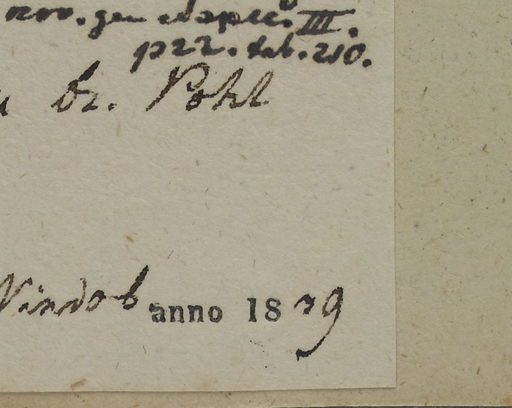 nov. gen et spec. III.
p 22. tab. 210.
br. Pohl
Vindob anno 1839